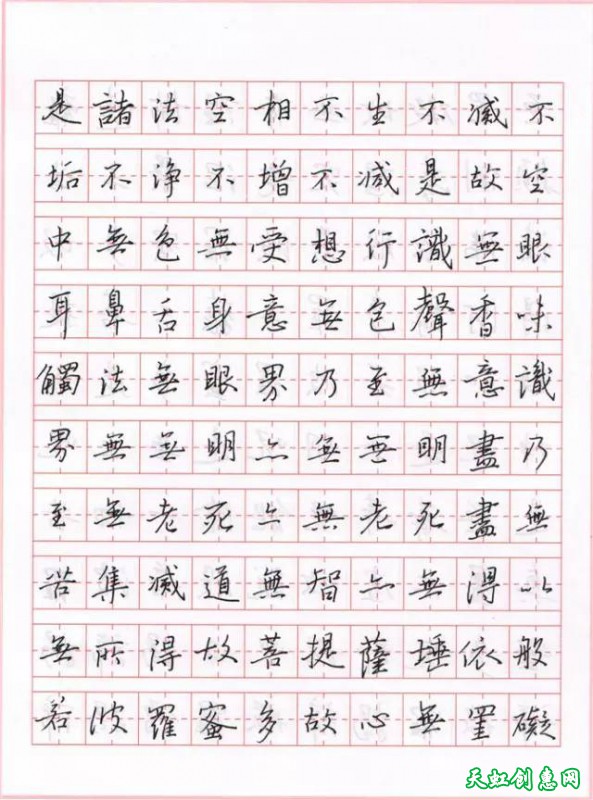 是諸法空相不生不滅不
垢不淨不增不減是故空
中無色無受想行識無眼
耳鼻舌身意無色聲香味
觸法無眼界乃至無意識
界無無明亦無無明盡乃
至無老死亦無老死盡無
苦集滅道無智亦無得以
無所得故菩提薩埵依般
若波羅蜜多故心無罣礙
天虹创意网